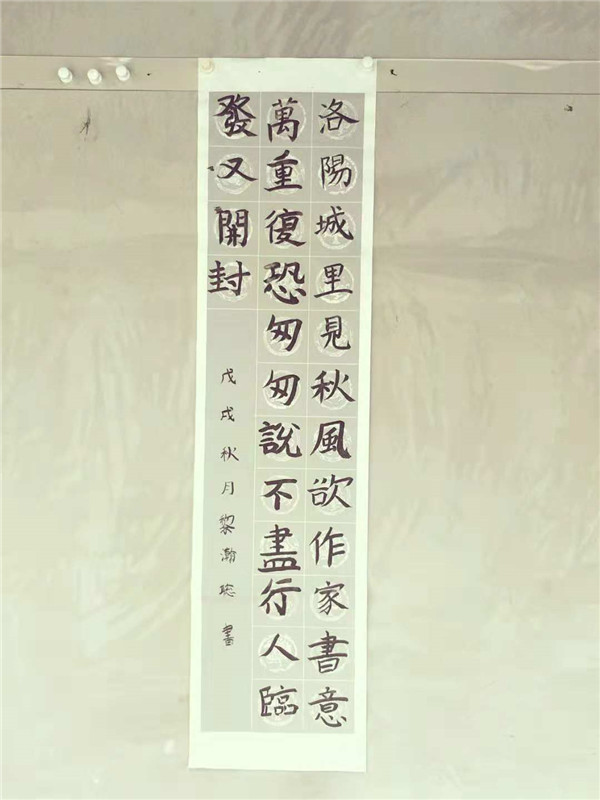 洛陽城里見秋風欲作家書意
萬重復恐匆匆說不盡行人臨
發又開封
戊戌秋月黎瀚聪書